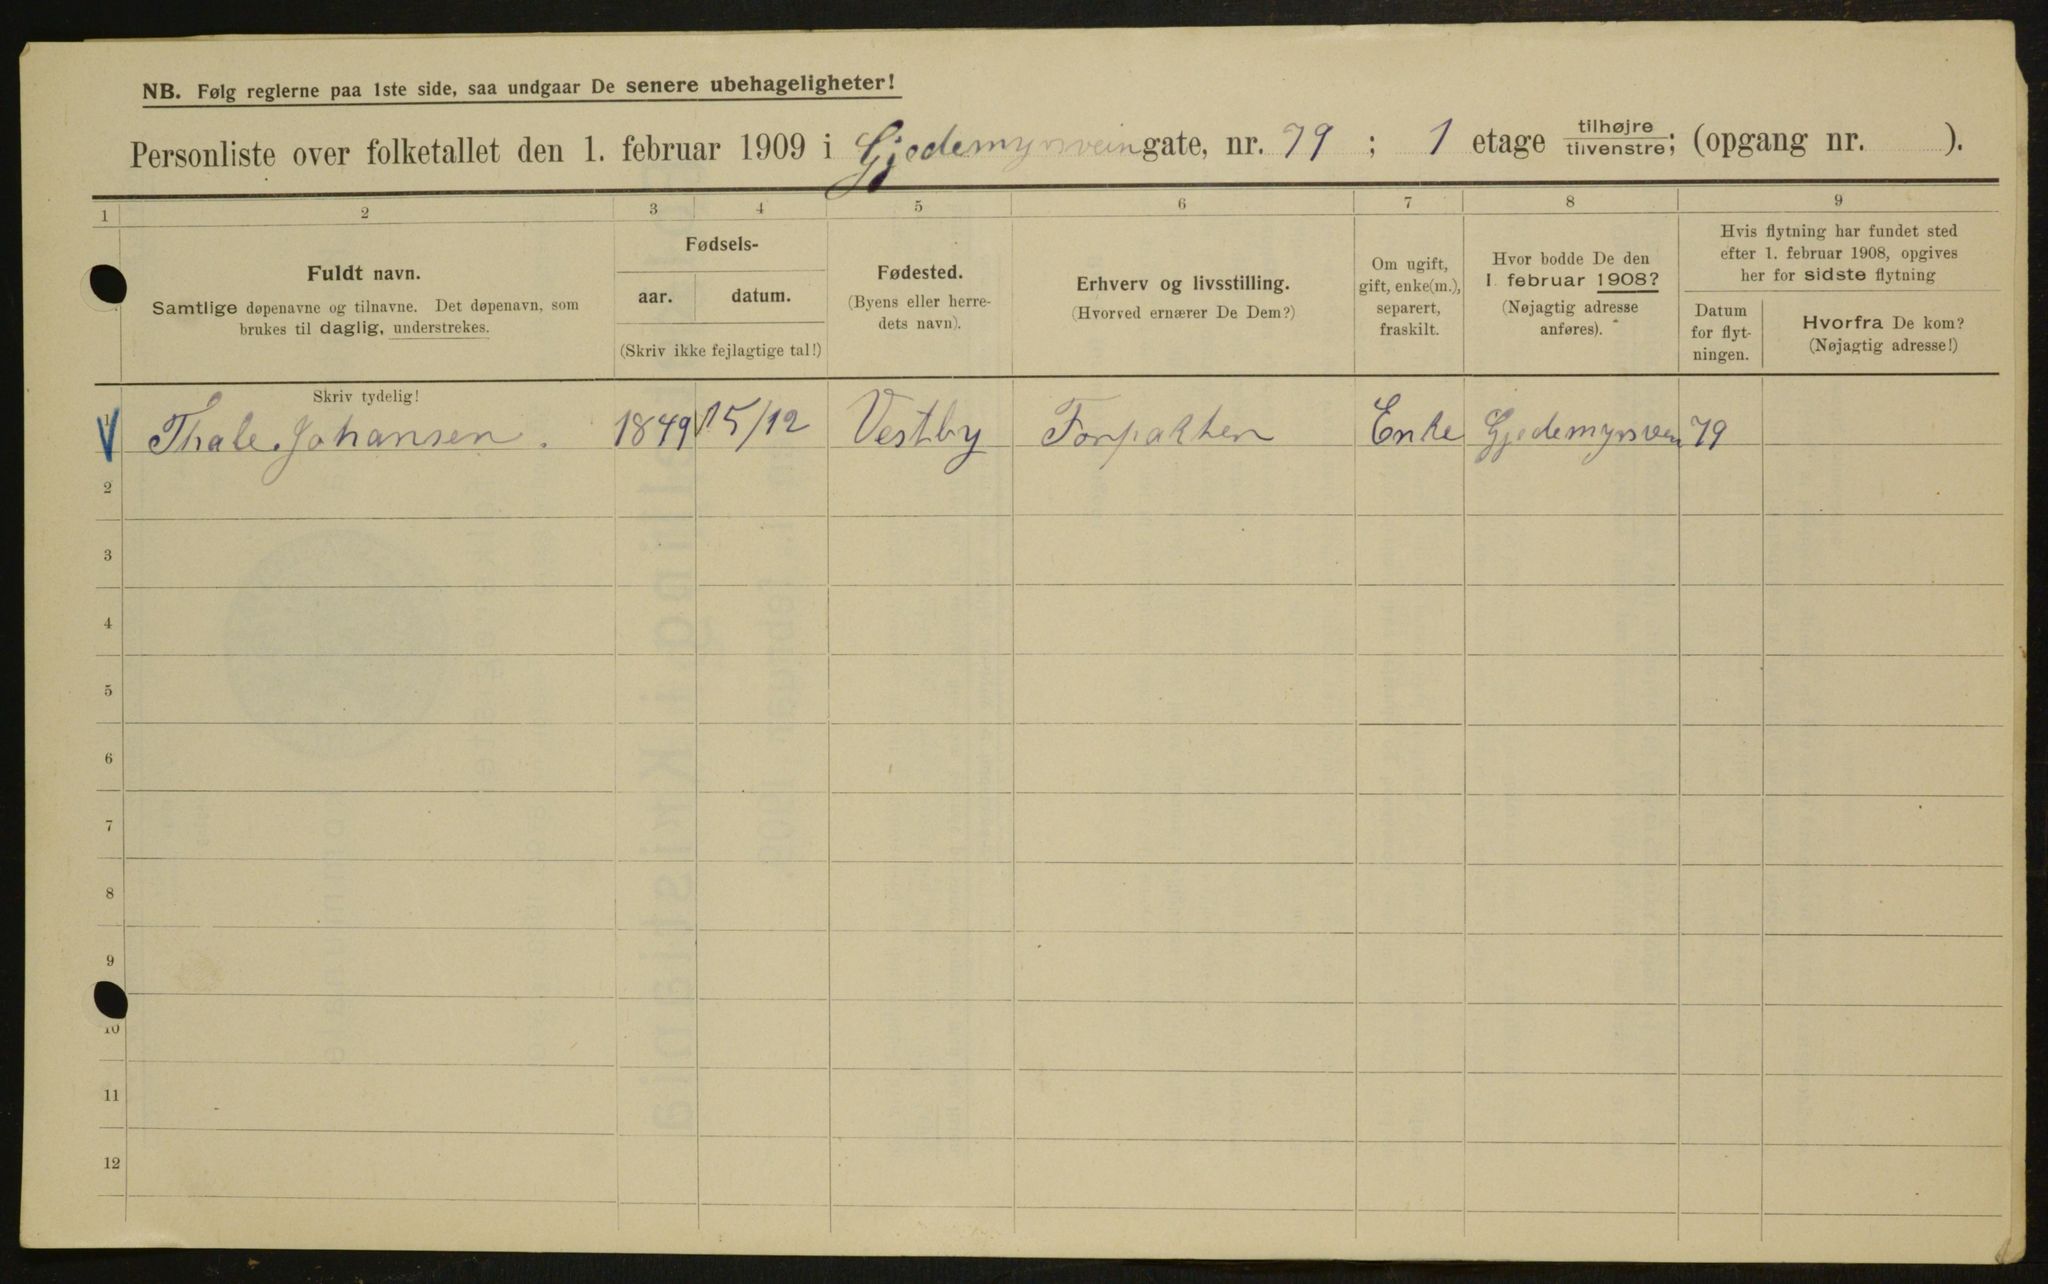 NB. Følg reglerne paa 1ste side, saa undgaar De senere ubehageligheter!
Personliste over folketallet den 1. februar 1909 i Gjedemyrsveien gate, nr. 79 ; 1 etage tilhøjre tilvenstre; (opgang nr. ).
1 2 3 4 5 6 7 8 9
Fuldt navn.
Samtlige døpenavne og tilnavne. Det døpenavn, som
brukes til daglig, understrekes.
Skriv tydelig!
Fødsels-
aar. datum.
(Skriv ikke fejlagtige tal!)
Fødested.
(Byens eller herre-
dets navn).
Erhverv og livsstilling.
(Hvorved ernærer De Dem?)
Om ugift,
gift, enke(m.),
separert,
fraskilt.
Hvor bodde De den
1. februar 1908?
(Nøjagtig adresse
anføres).
Hvis flytning har fundet sted
efter 1. februar 1908, opgives
her for sidste flytning
Datum
for flyt-
ningen.
Hvorfra De kom?
(Nøjagtig adresse!)
Thale Johansen. 1849 15/12 Vestby Forpakter Enke Gjedemyrsvei 79
2
3
4
5
6
7
8
9
10
11
12